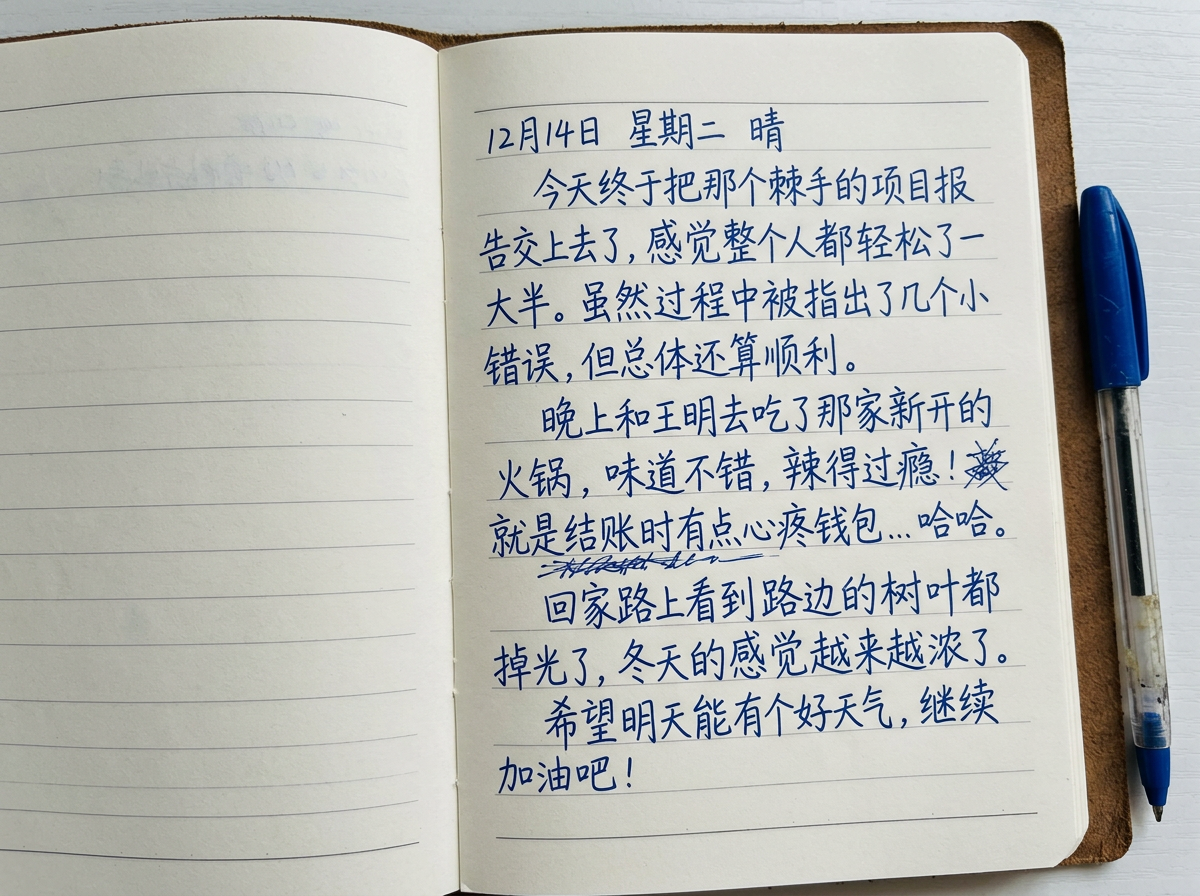 12月14日 星期二 晴
今天终于把那个棘手的项目报
告交上去了,感觉整个人都轻松了一
大半。虽然过程中被指出了几个小
错误,但总体还算顺利。
晚上和王明去吃了那家新开的
火锅,味道不错,辣得过瘾!
就是结账时有点心疼钱包...哈哈。
回家路上看到路边的树叶都
掉光了,冬天的感觉越来越浓了。
希望明天能有个好天气,继续
加油吧!